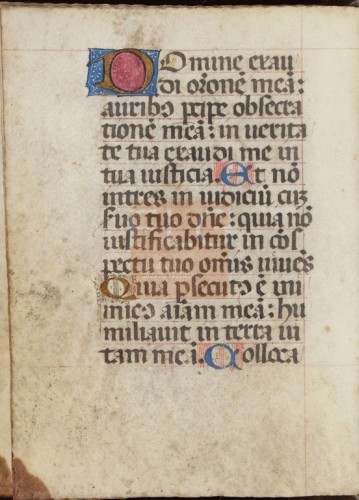 Domine exau
di orōnē meā:
auribꝯ ꝑcipe obsecra
tionē meā: in uerita
te tua exaudi me in
tua iusticia. Et nō
intres in iudiciū cuꝫ
suo tuo dn̄e: quia nō
iustificabitur in cōs
pectu tuo om̄is uiuēs
Quia ꝑsecutꝯ ē ini
micꝯ aīam meā: hu
miliauit in terra ui
tam meā. Colloca